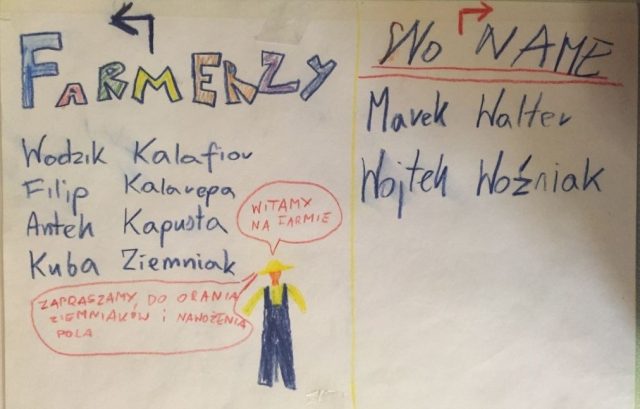 FARMERZY
Wodzik Kalafior
Filip Kalarepa
Antek Kapusta
Kuba Ziemniak
WITAMY
NA FARMIE
ZAPRASZAMY DO ORANIA
ZIEMNIAKÓW I NAWOŻENIA
POLA
WO NAME
Marek Walter
Wojtek Woźniak